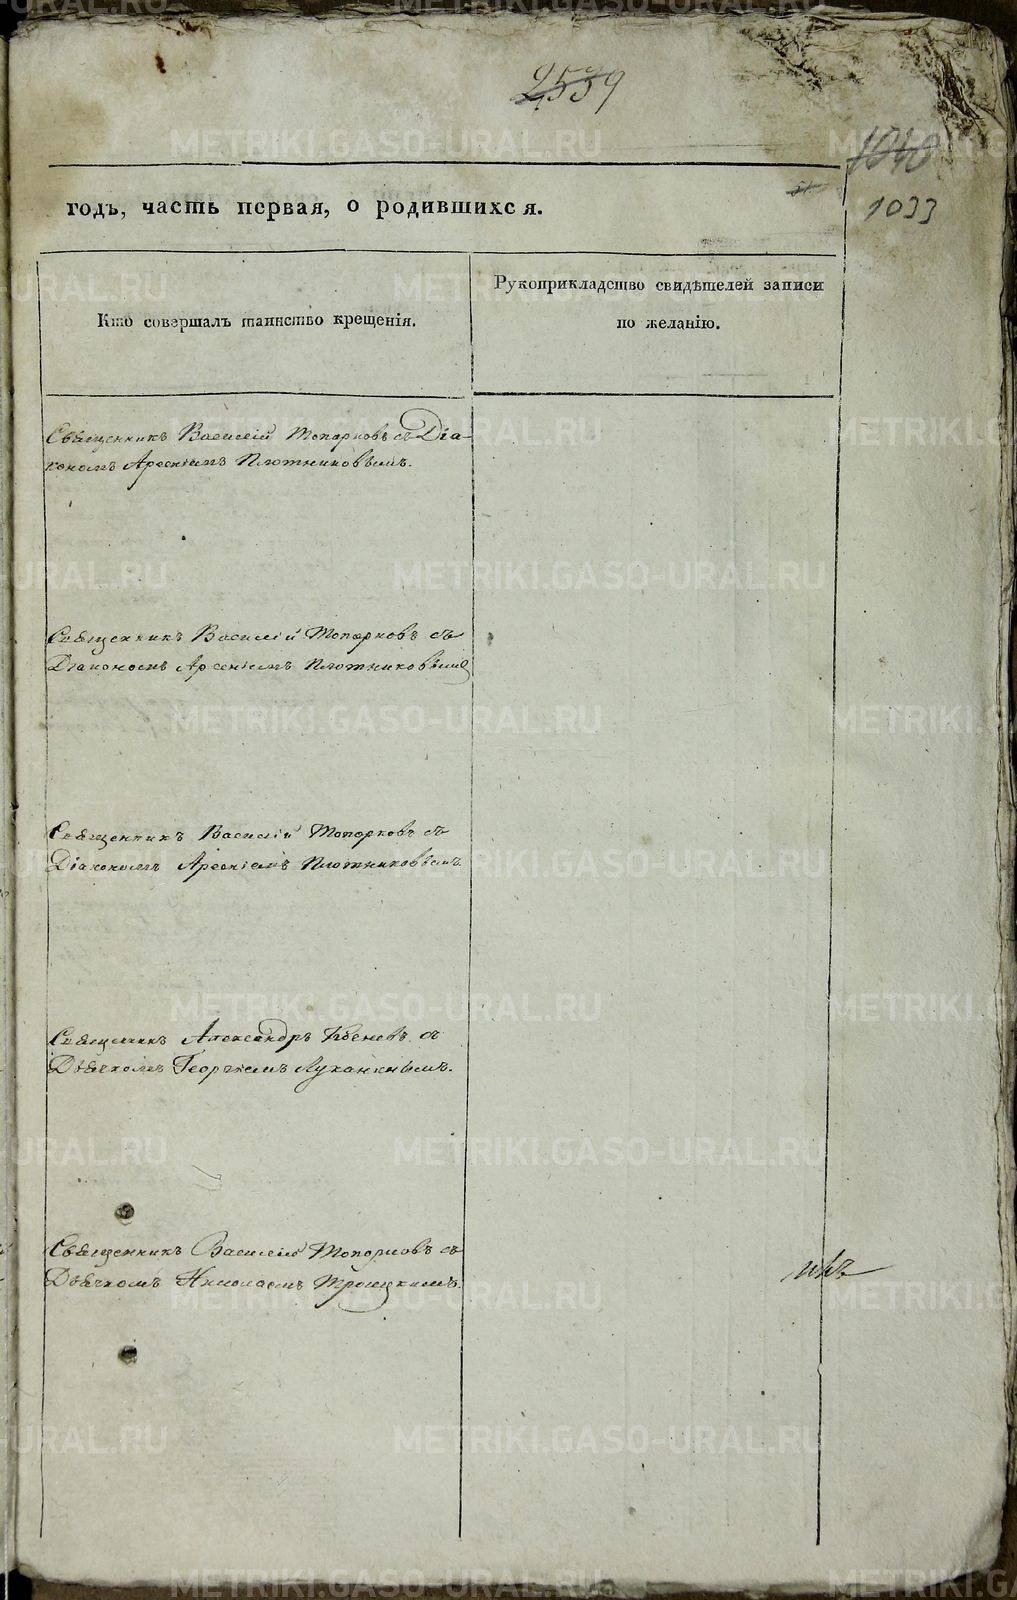 2539
1040
1033
годъ, часть первая, о родившихся.
Кто совершалъ таинство крещенія.
Рукоприкладство свидѣтелей записи
по желанію.
Священникъ Василій Топорковъ съ Діа-
кономъ Арсеніемъ Плотниковымъ.
Священникъ Василій Топорковъ съ
Діакономъ Арсеніемъ Плотниковымъ
Священникъ Василій Топорковъ съ
Діакономъ Арсеніемъ Плотниковымъ.
Священникъ Александръ съ
Дьячкомъ Георгіемъ Луканинымъ.
Священникъ Василій Топорковъ съ
Дьячкомъ Николаемъ Троицкимъ.
METRIKI.GASO-URAL.RU